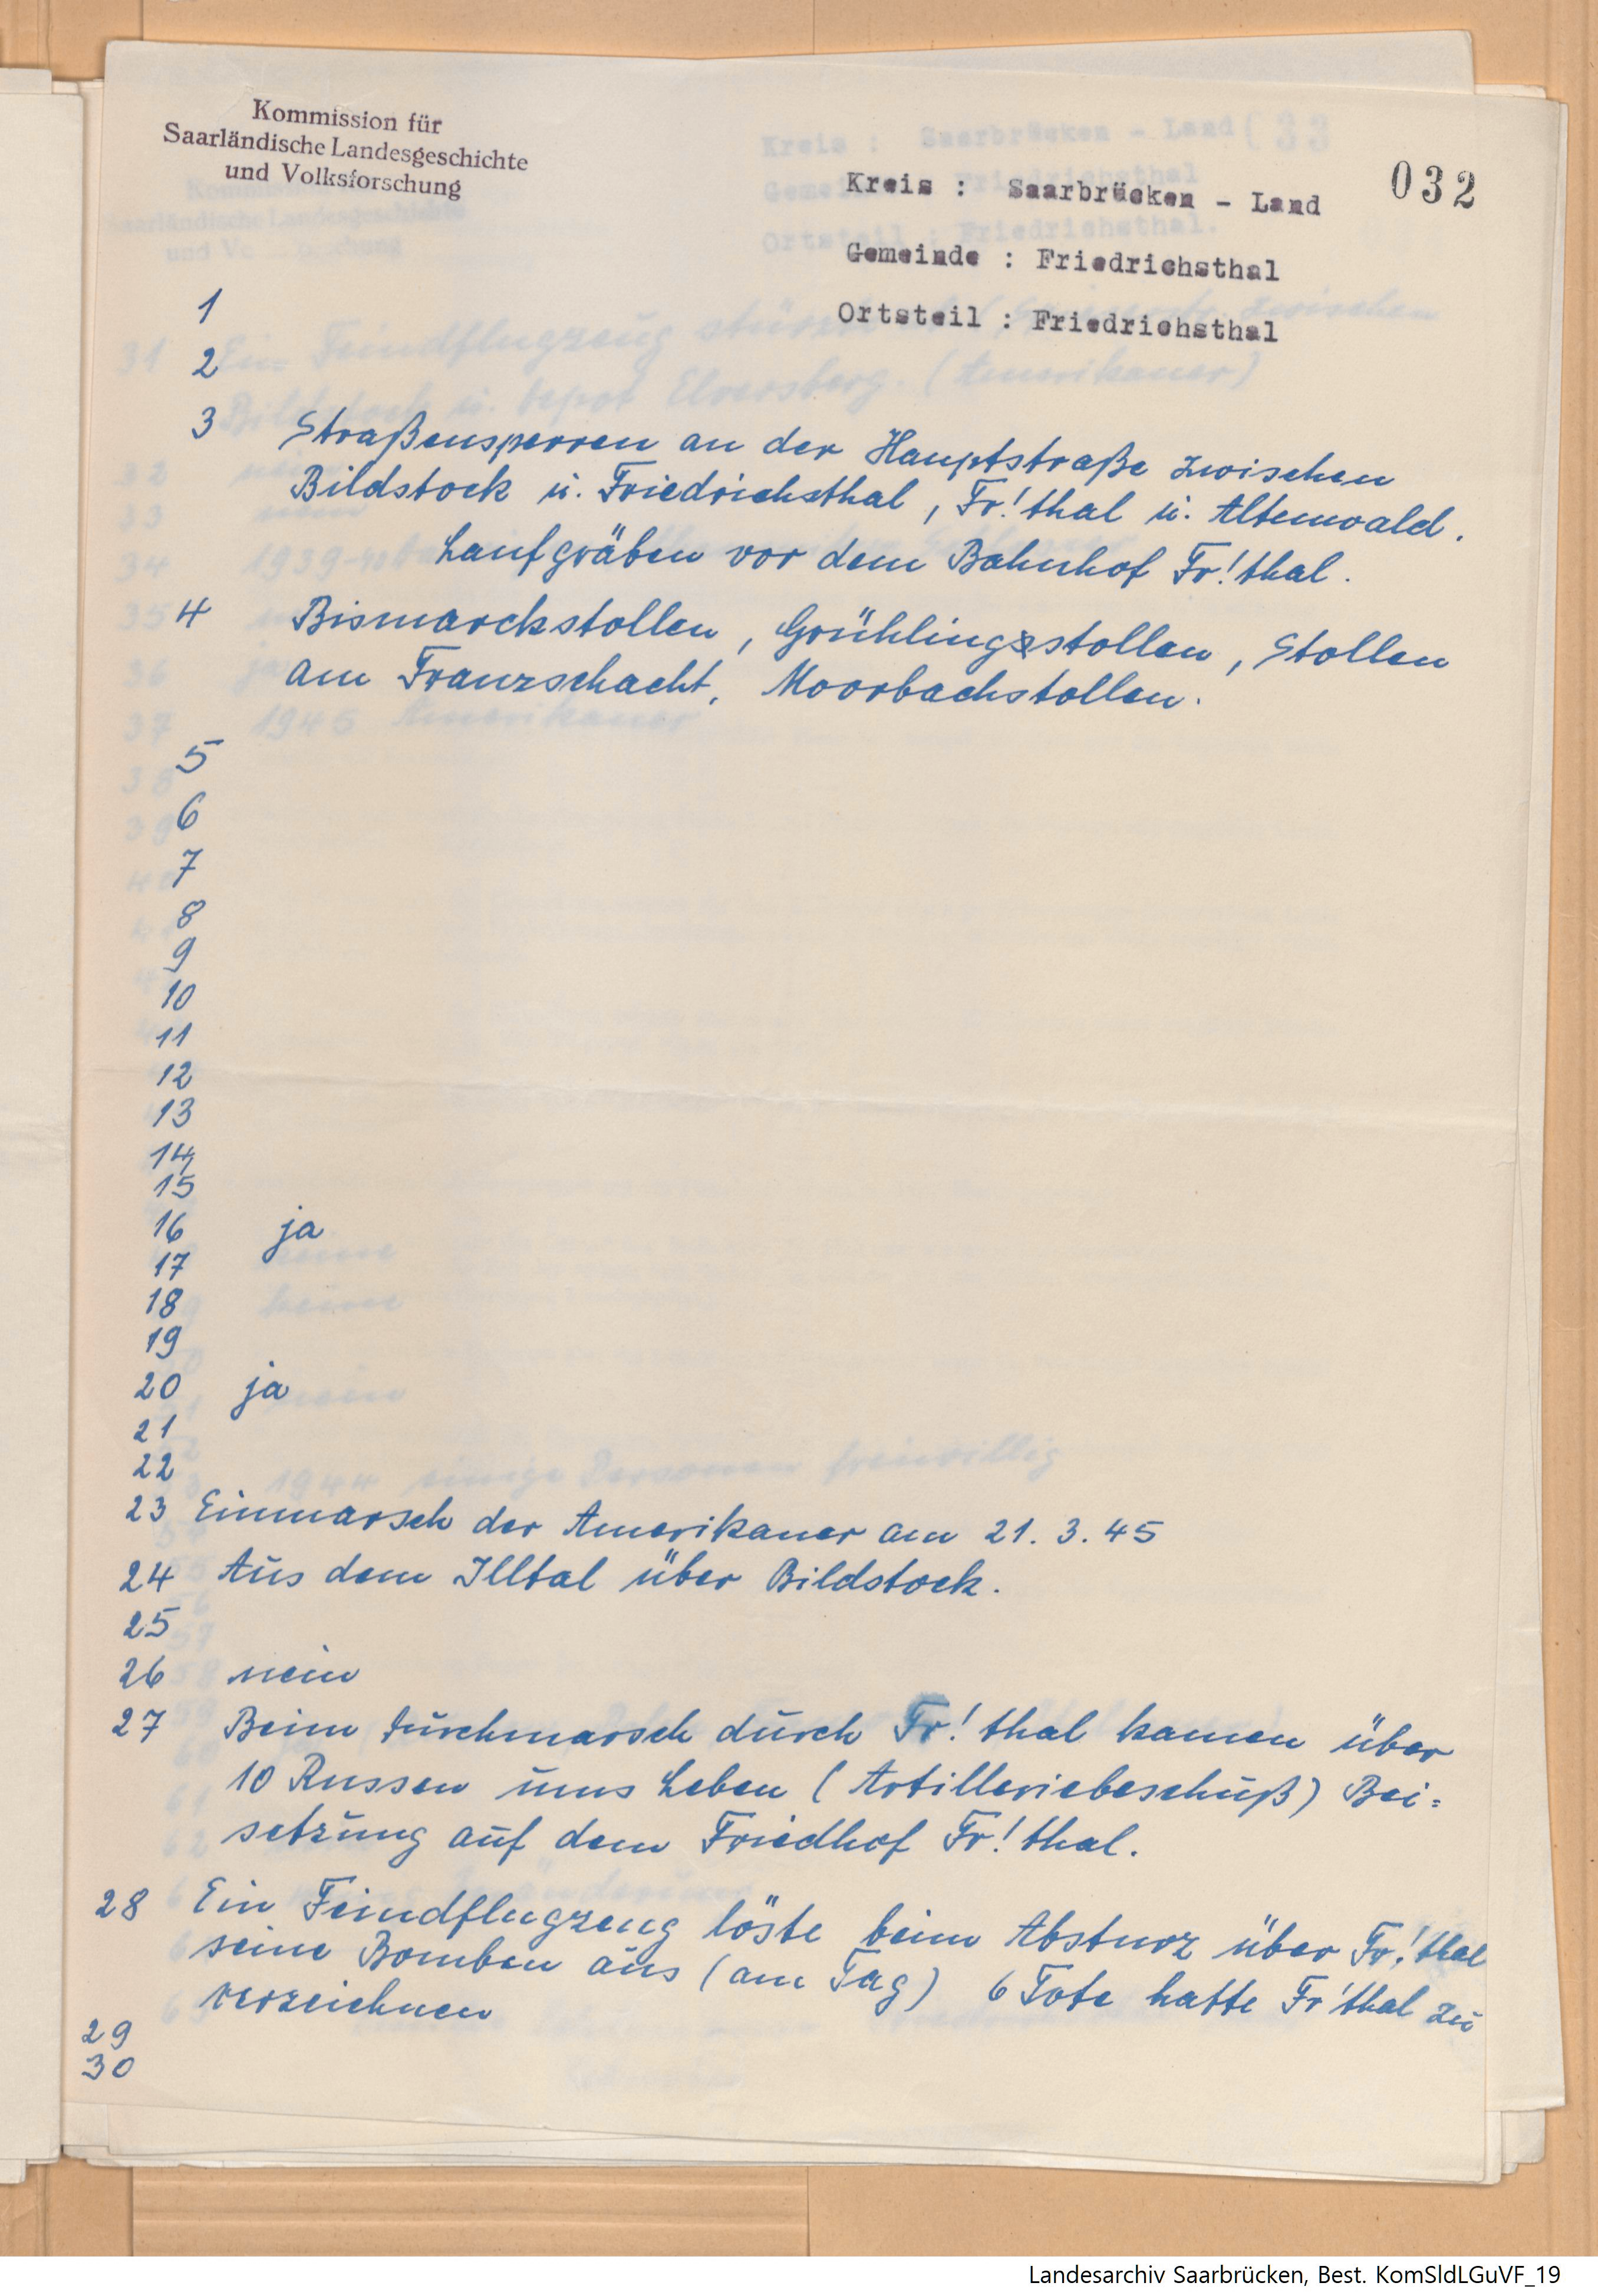 Kommission für
Saarländische Landesgeschichte
und Volksforschung
032
Kreis : Saarbrücken - Land
Gemeinde : Friedrichsthal
Ortsteil : Friedrichsthal
1
2
3 Straßensperren an der Hauptstraße zwischen
Bildstock u. Friedrichsthal, Fr!thal u. Altenwald.
Laufgräben vor dem Bahnhof Fr!thal.
4 Bismarckstollen, Grühlingsstollen, Stollen
am Franzschacht, Moorbachstollen.
5
6
7
8
9
10
11
12
13
14
15
16 ja
17
18
19
20 ja
21
22
23 Einmarsch der Amerikaner am 21. 3. 45
24 Aus dem Illtal über Bildstock.
25
26 nein
27 Beim Durchmarsch durch Fr!thal kamen über
10 Russen ums Leben (Artilleriebeschuß) Bei=
setzung auf dem Friedhof Fr!thal.
28 Ein Feindflugzeug löste beim Absturz über Fr!thal
seine Bomben aus (am Tag) 6 Tote hatte Fr'thal zu
verzeichnen
29
30
Landesarchiv Saarbrücken, Best. KomSldLGuVF_19